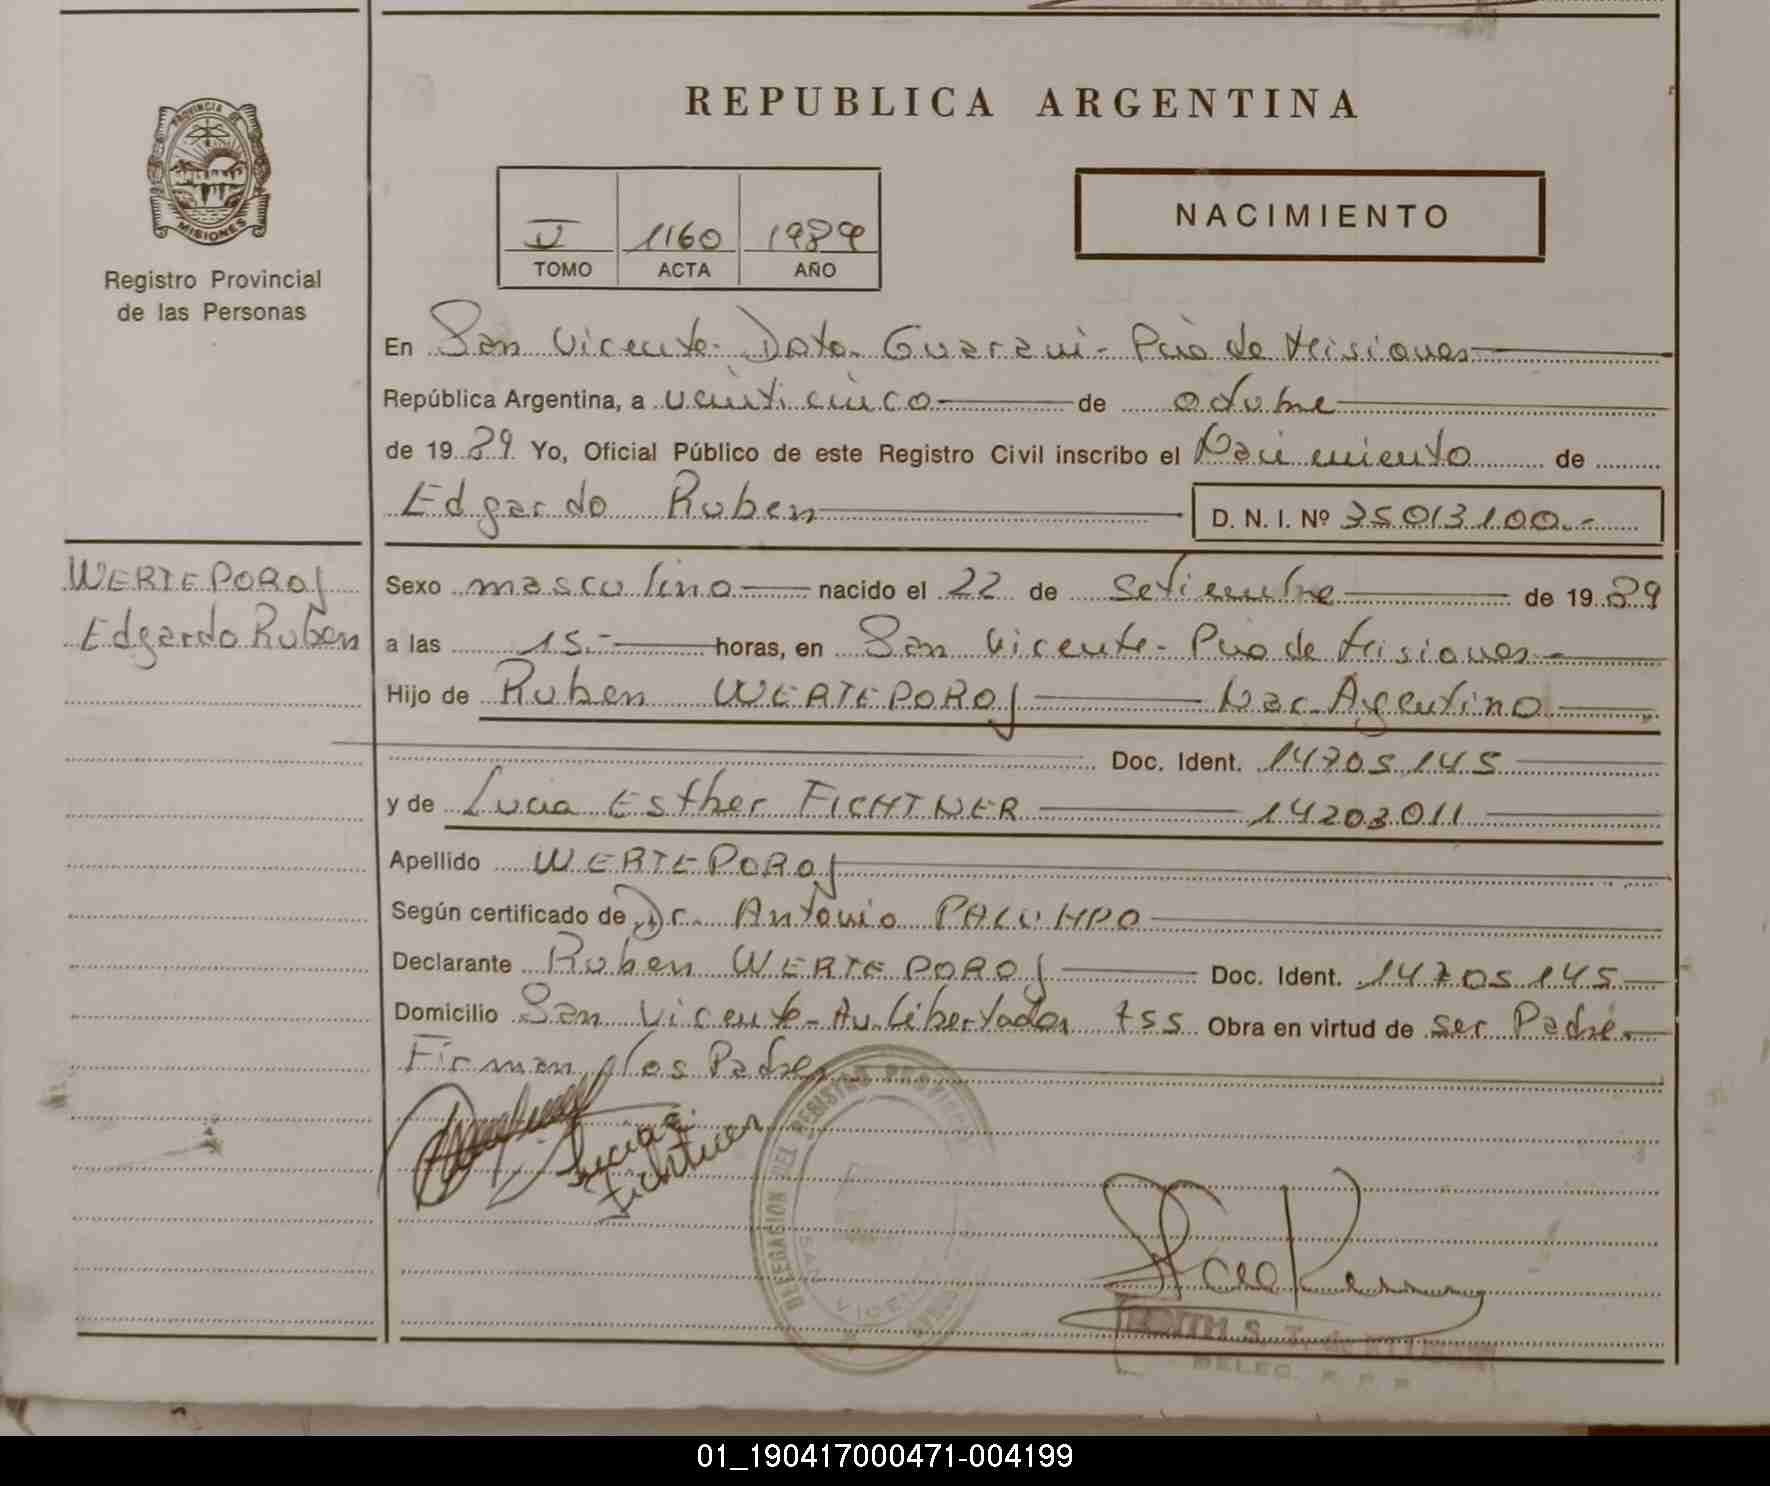 REPUBLICA ARGENTINA
PROVINCIA DE
MISIONES
Registro Provincial
de las Personas
1160 1989
TOMO ACTA AÑO
NACIMIENTO
En San Vicente - Dpto. Guarani - Pcia de Misiones
República Argentina, a veinticinco de octubre
de 1989 Yo, Oficial Público de este Registro Civil inscribo el Nacimiento de
Edgardo Ruben D. N. I. Nº 35013100.-
WERTEPOROJ
Edgardo Ruben
Sexo masculino nacido el 22 de Setiembre de 1989
a las 15.- horas, en San Vicente - Pcia de Misiones -
Hijo de Ruben WERTEPOROJ Nac. Argentino
Doc. Ident. 14705145
y de Lucia Esther FICHTNER 14203011
Apellido WERTEPOROJ
Según certificado de Dr. Antonio PALUMPO
Declarante Ruben WERTEPOROJ Doc. Ident. 14705145
Domicilio San Vicente - Av. Libertador 755 Obra en virtud de ser Padre.
Firman los Padres
Lucia E.
Fichtner
DELEGACION DEL REGISTRO PROVINCIAL
SAN VICENTE
EDITH S. T. de
DELEG. R. P. P.
01_190417000471-004199